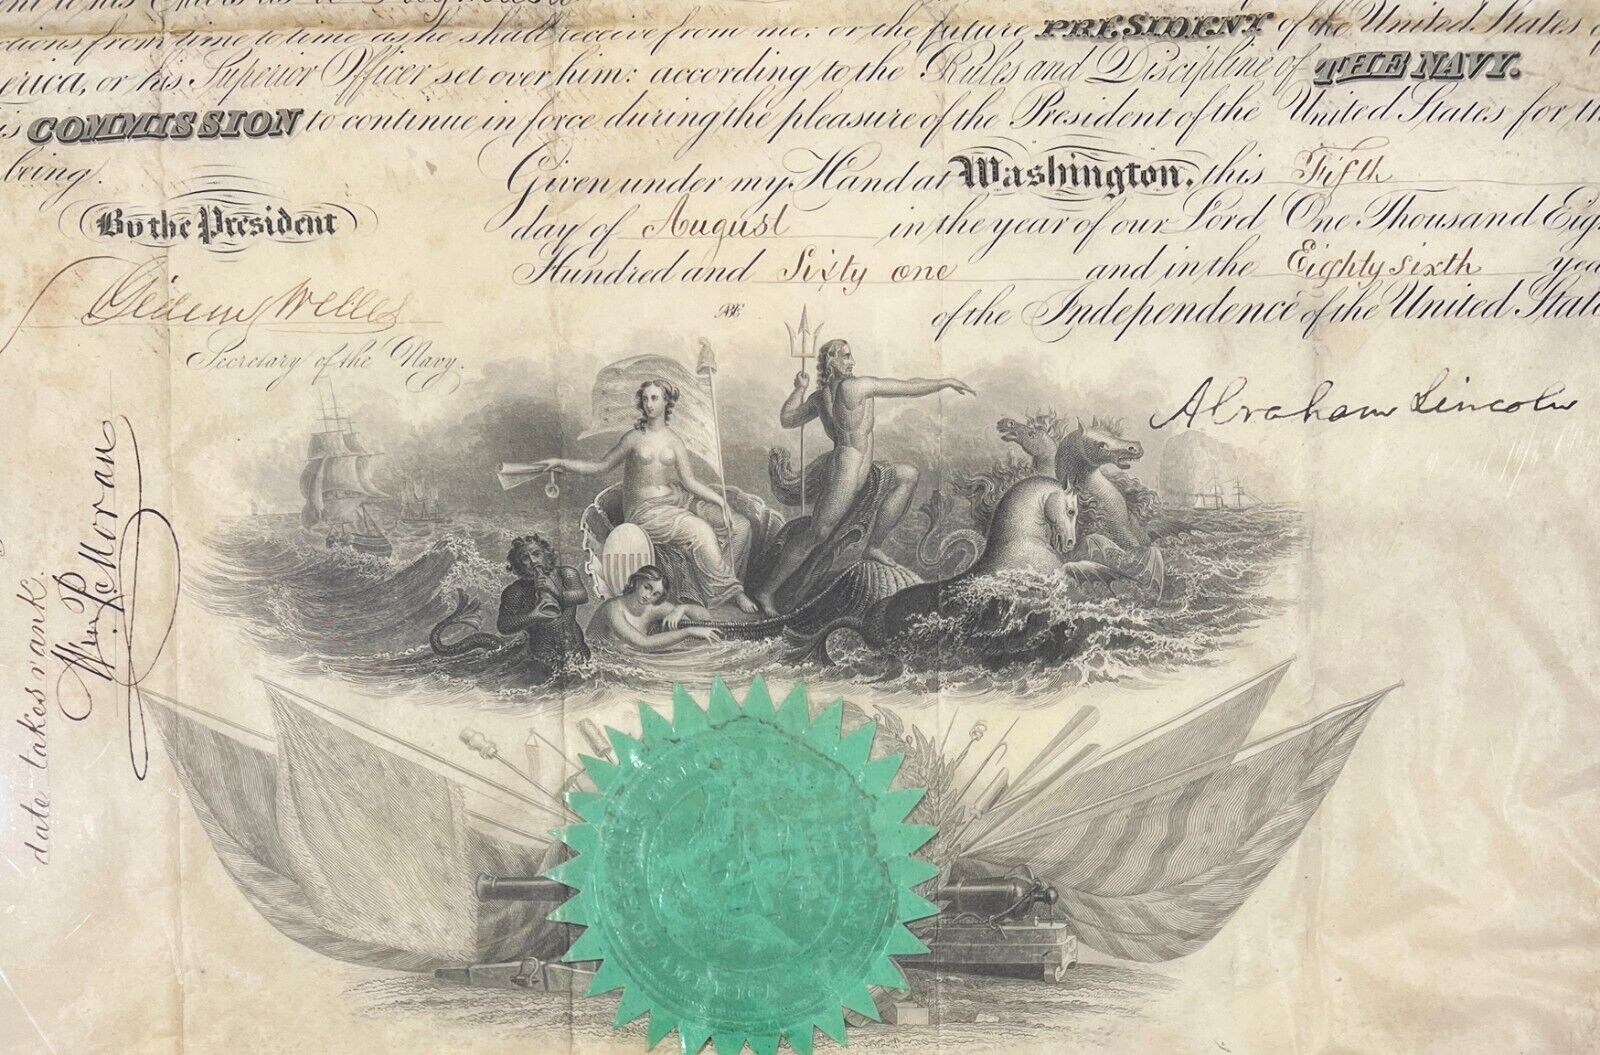 ctions from time to time as he shall receive from me: or the future PRESIDENT of the United States of
erica, or his Superior Officer set over him: according to the Rules and Discipline of THE NAVY.
is COMMISSION to continue in force during the pleasure of the President of the United States for th
being.
Given under my Hand at Washington, this Fifth
day of August in the year of our Lord One Thousand Eigh
Hundred and Sixty one and in the Eighty sixth yea
of the Independence of the United State
By the President
Gideon Welles
Secretary of the Navy.
Abraham Lincoln
date takes rank.
Wm P. Moran
AMERICA